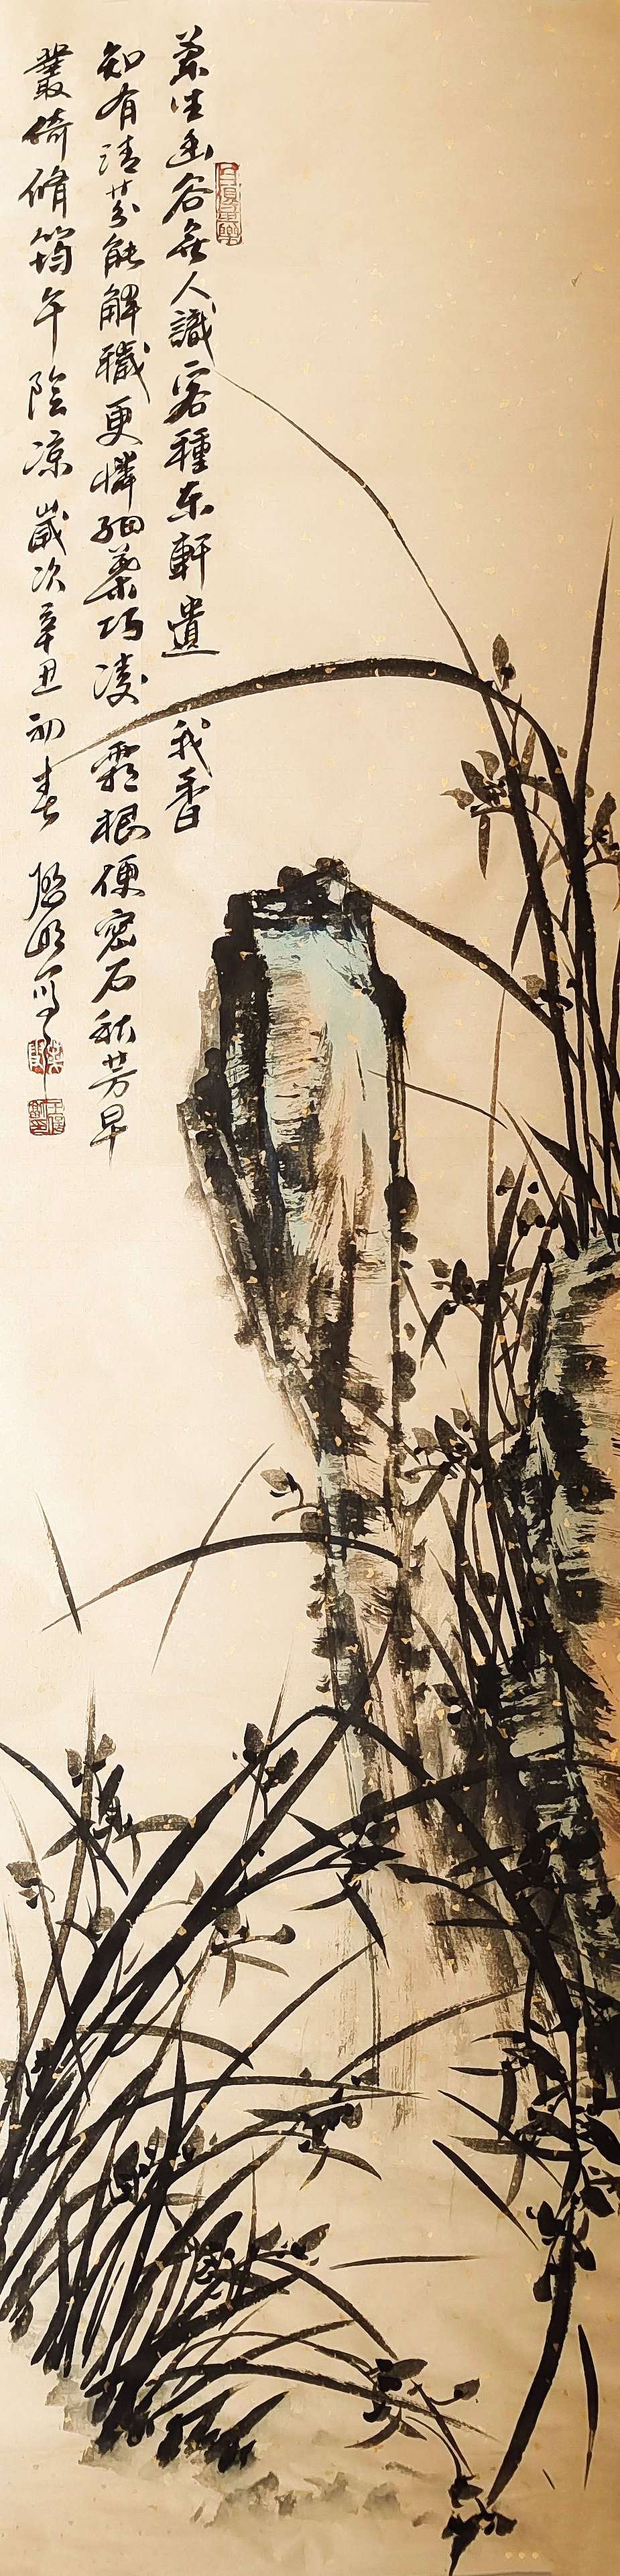 蘭生幽谷無人識客種東軒遺我香
知有清芬能解穢更憐細葉巧凌霜根便密石秋芳早
叢倚脩筠午陰涼歲次辛丑初春啟明寫